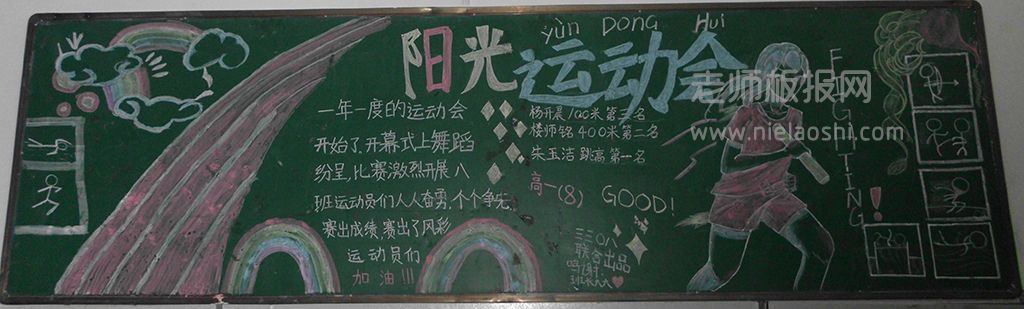 yùn DONG HuI
阳光运动会
老师板报网
www.nielaoshi.com
FIGHTING!
一年一度的运动会
开始了,开幕式上舞蹈
纷呈,比赛激烈开展八
班运动员们人人奋勇,个个争先,
赛出成绩,赛出了风彩
运动员们
加油!!!
杨开晨100米第三名
楼师铭400米第二名
朱玉洁 跳高 第一名
高一(8) GOOD!
三三〇八
联合出品
鸣谢: